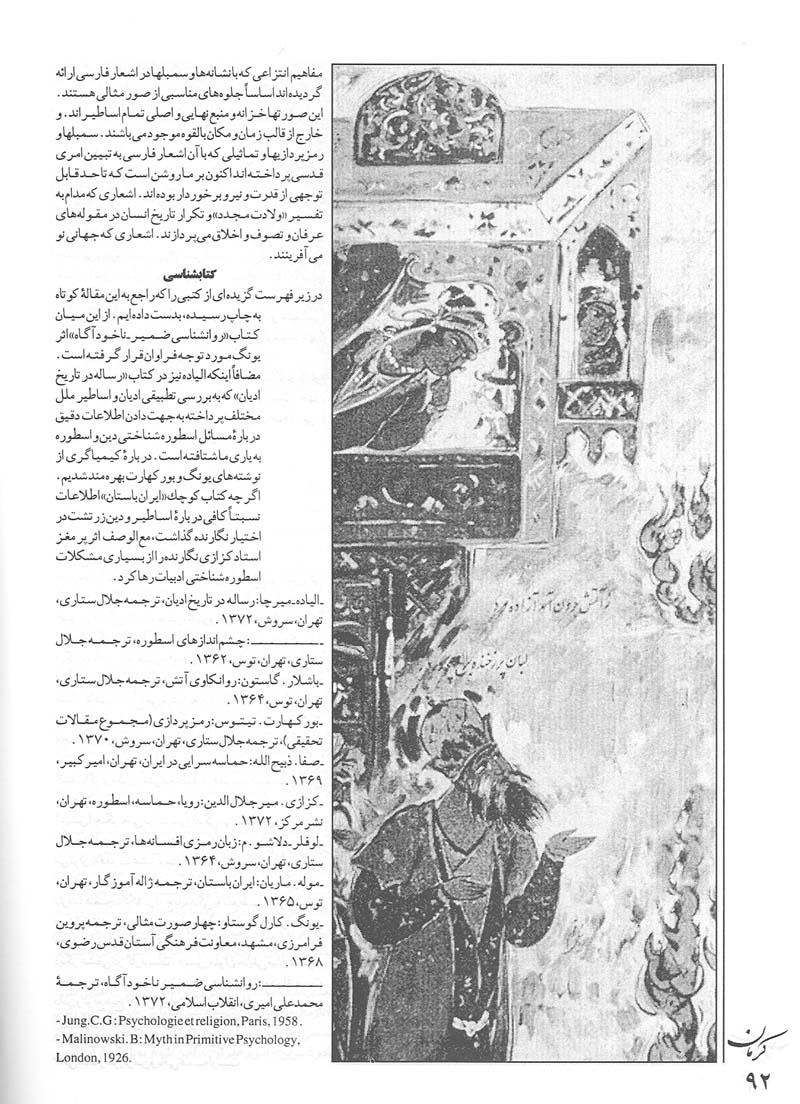 مفاهیم انتزاعی که با نشانه‌ها و سمبلها در اشعار فارسی ارائه
گردیده‌اند اساساً جلوه‌های مناسبی از صور مثالی هستند.
این صور تنها خزانه و منبع نهایی و اصلی تمام اساطیراند. و
خارج از قالب زمان و مکان بالقوه موجود می‌باشند. سمبلها و
رمزپردازیها و تماثیلی که با آن اشعار فارسی به تبیین امری
قدسی پرداخته‌اند اکنون بر ما روشن است که تا حد قابل
توجهی از قدرت و نیرو برخوردار بوده‌اند. اشعاری که مدام به
تفسیر «ولادت مجدد» و تکرار تاریخ انسان در مقوله‌های
عرفان و تصوف و اخلاق می‌پردازند. اشعاری که جهانی نو
می‌آفرینند.
کتابشناسی
در زیر فهرست گزیده‌ای از کتبی را که راجع به این مقالهٔ کوتاه
به چاپ رسیده، بدست داده‌ایم. از این میان
کتاب «روانشناسی ضمیر ـ ناخودآگاه» اثر
یونگ مورد توجه فراوان قرار گرفته است.
مضافاً اینکه الیاده نیز در کتاب «رساله در تاریخ
ادیان» که به بررسی تطبیقی ادیان و اساطیر ملل
مختلف پرداخته به جهت دادن اطلاعات دقیق
دربارهٔ مسائل اسطوره‌شناختی دین و اسطوره
به یاری ما شتافته است. دربارهٔ کیمیاگری از
نوشته‌های یونگ و بورکهارت بهره‌مند شدیم.
اگر چه کتاب کوچک «ایران باستان» اطلاعات
نسبتاً کافی دربارهٔ اساطیر و دین زرتشت در
اختیار نگارنده گذاشت، مع‌الوصف اثر پر مغز
استاد کزازی نگارنده را از بسیاری مشکلات
اسطوره‌شناختی ادبیات رها کرد.
ـ الیاده ـ میرچا: رساله در تاریخ ادیان، ترجمه جلال ستاری،
تهران، سروش، ۱۳۷۲.
ـ ــــــــــــ: چشم‌اندازهای اسطوره، ترجمه جلال
ستاری، تهران، توس، ۱۳۶۲.
ـ باشلار. گاستون: روانکاوی آتش، ترجمه جلال ستاری،
تهران، توس، ۱۳۶۴.
ـ بورکهارت. تیتوس: رمزپردازی (مجموع مقالات
تحقیقی)، ترجمه جلال ستاری، تهران، سروش، ۱۳۷۰.
ـ صفا. ذبیح‌الله: حماسه‌سرایی در ایران، تهران، امیرکبیر،
۱۳۶۹.
ـ کزازی. میر جلال‌الدین: رویا، حماسه، اسطوره، تهران،
نشر مرکز، ۱۳۷۲.
ـ لوفلر ـ دلاشو. م: زبان رمزی افسانه‌ها، ترجمه جلال
ستاری، تهران، سروش، ۱۳۶۴.
ـ موله. ماریان: ایران باستان، ترجمه ژاله آموزگار، تهران،
توس، ۱۳۶۵.
ـ یونگ. کارل گوستاو: چهار صورت مثالی، ترجمه پروین
فرامرزی، مشهد، معاونت فرهنگی آستان قدس رضوی،
۱۳۶۸.
ـ ــــــــــــ: روانشناسی ضمیر ناخودآگاه، ترجمهٔ
محمدعلی امیری، انقلاب اسلامی، ۱۳۷۲.
- Jung.C.G: Psychologie et religion, Paris, 1958.
- Malinowski. B: Myth in Primitive Psychology,
London, 1926.
ز آتش برون آمد آزاده مرد
لبان پر ز خنده برخ
کرمان
۹۲